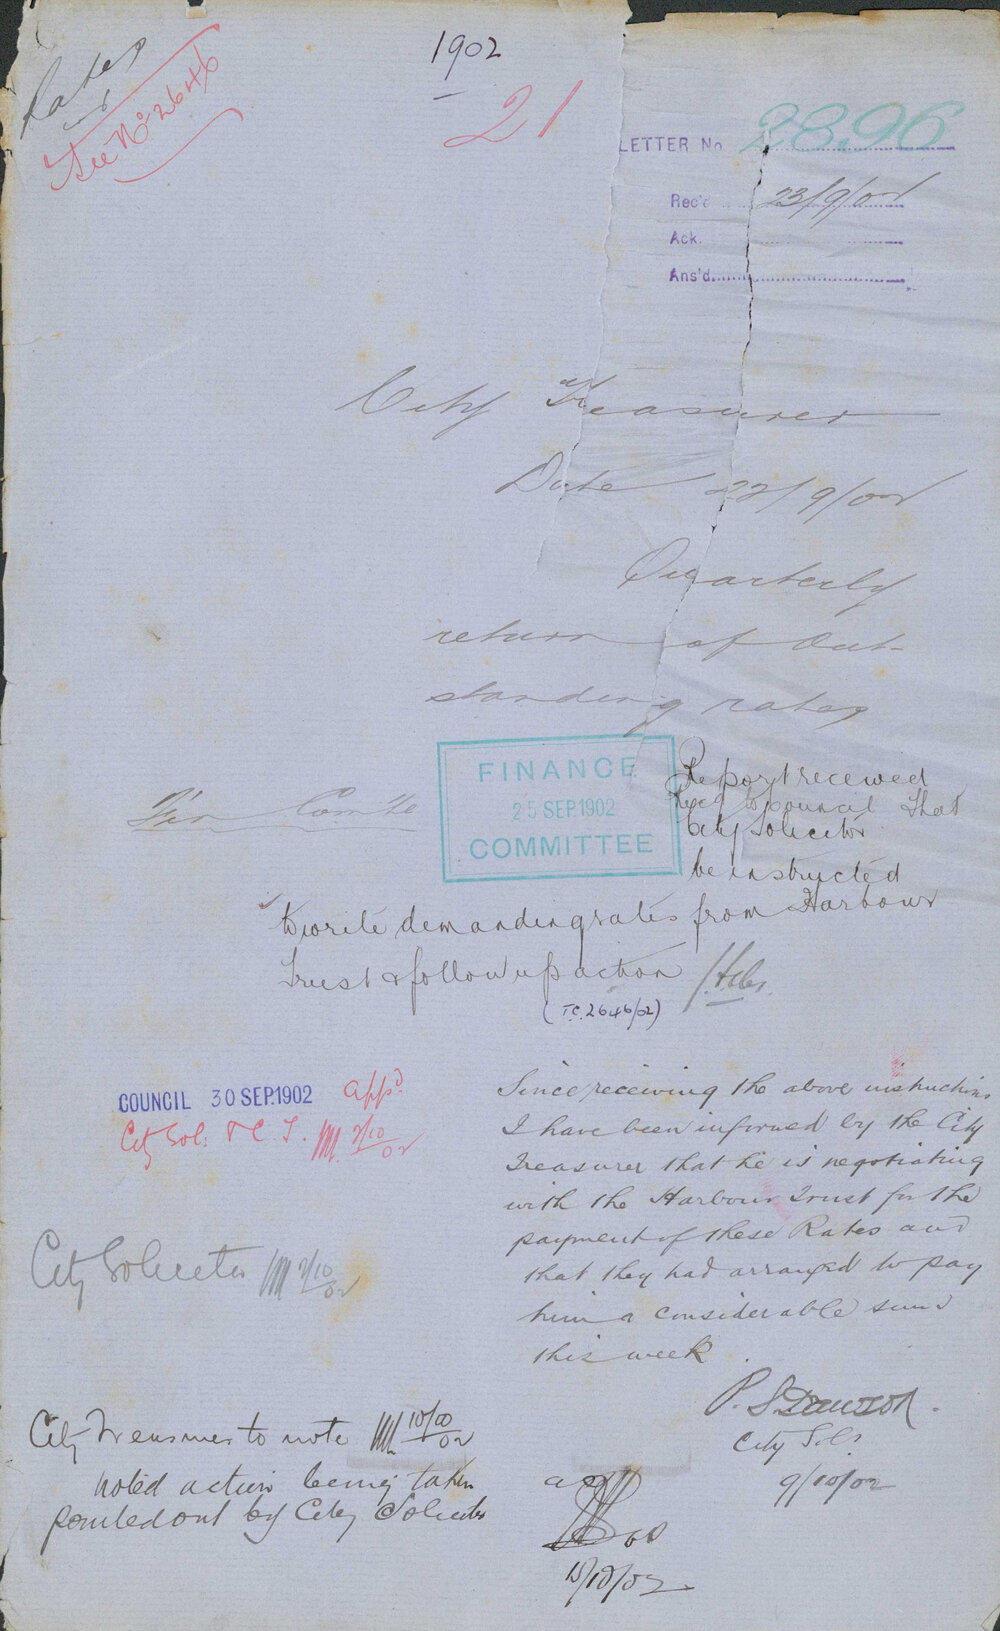 1902
Rates
See No 2646
21
LETTER No. 2896
Rec'd 23/9/02
Ack.
Ans'd.
City Treasurer
Date 22/9/02
Quarterly
return of Out-
standing rates
Fin Comte
FINANCE
25 SEP. 1902
COMMITTEE
Report received
Recd to council that
City Solicitor
be instructed
to write demanding rates from Harbour
Trust & follow up action
(TC. 2646/02)
COUNCIL 30 SEP. 1902 appd
City Sol: & C T. 2/10/02
City Solicitor 2/10/02
Since receiving the above instructions
I have been informed by the City
Treasurer that he is negotiating
with the Harbour Trust for the
payment of these Rates and
that they had arranged to pay
him a considerable sum
this week
City Solr
9/10/02
City Treasurer to note 10/10/02
noted action being taken
pointed out by City Solicitor
15/10/02